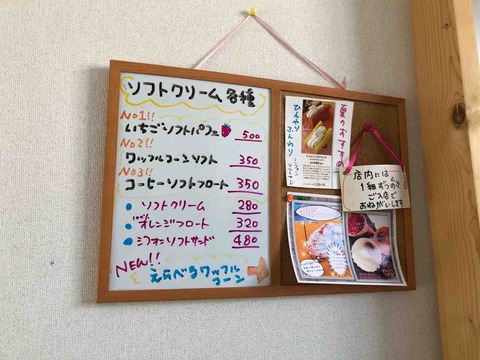 ソフトクリーム各種
No1!!
いちごソフトパフェ 500
No2!!
ワッフルコーンソフト 350
No3!!
コーヒーソフトフロート 350
ソフトクリーム 280
オレンジフロート 320
シフォンソフトサンド 480
NEW!!
えらべるワッフル
コーン
夏のおすすめ
ひんやり
ふんわり
店内には
1組ずつの
ご入店で
おねがいします